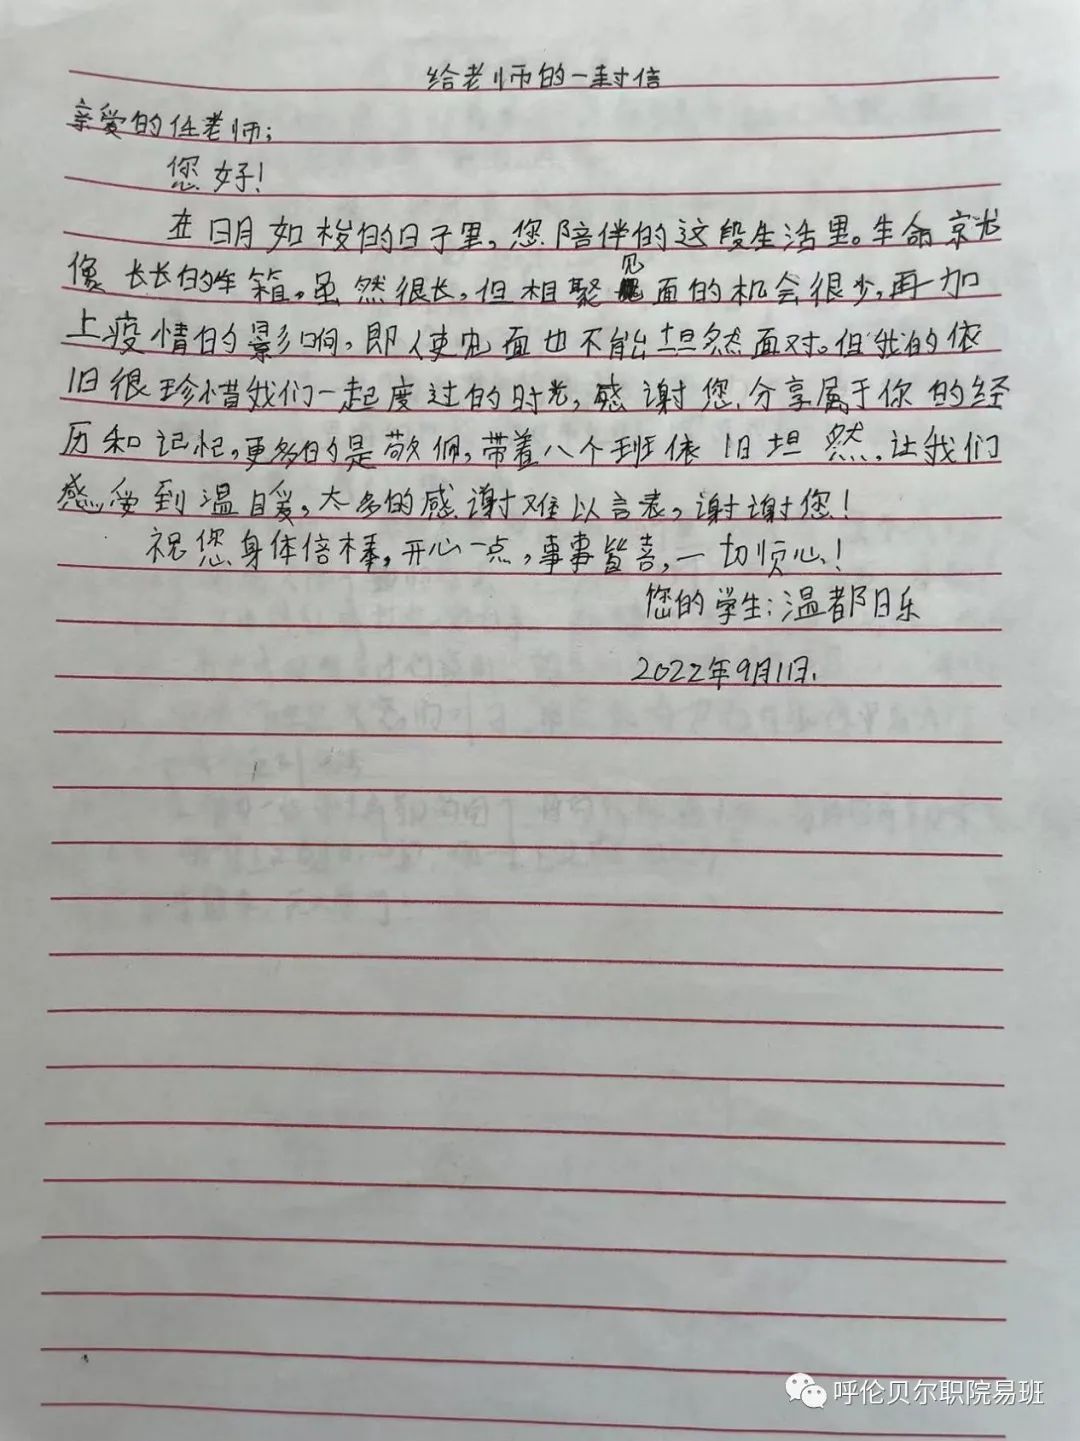 给老师的一封信
亲爱的任老师；
您好！
在日月如梭的日子里，您陪伴的这段生活里。生命京尤
像长长的车箱。虽然很长，但相聚见面的机会很少，再加
上疫情的影响，即使见面也不能坦然面对。但我的依
旧很珍惜我们一起度过的时光，感谢您分享属于你的经
历和记忆，更多的是敬佩，带着八个班依旧坦然，让我们
感受到温暖，太多的感谢难以言表，谢谢您！
祝您身体倍棒，开心一点，事事皆喜，一切顺心！
您的学生：温都日乐
2022年9月1日.
呼伦贝尔职院易班